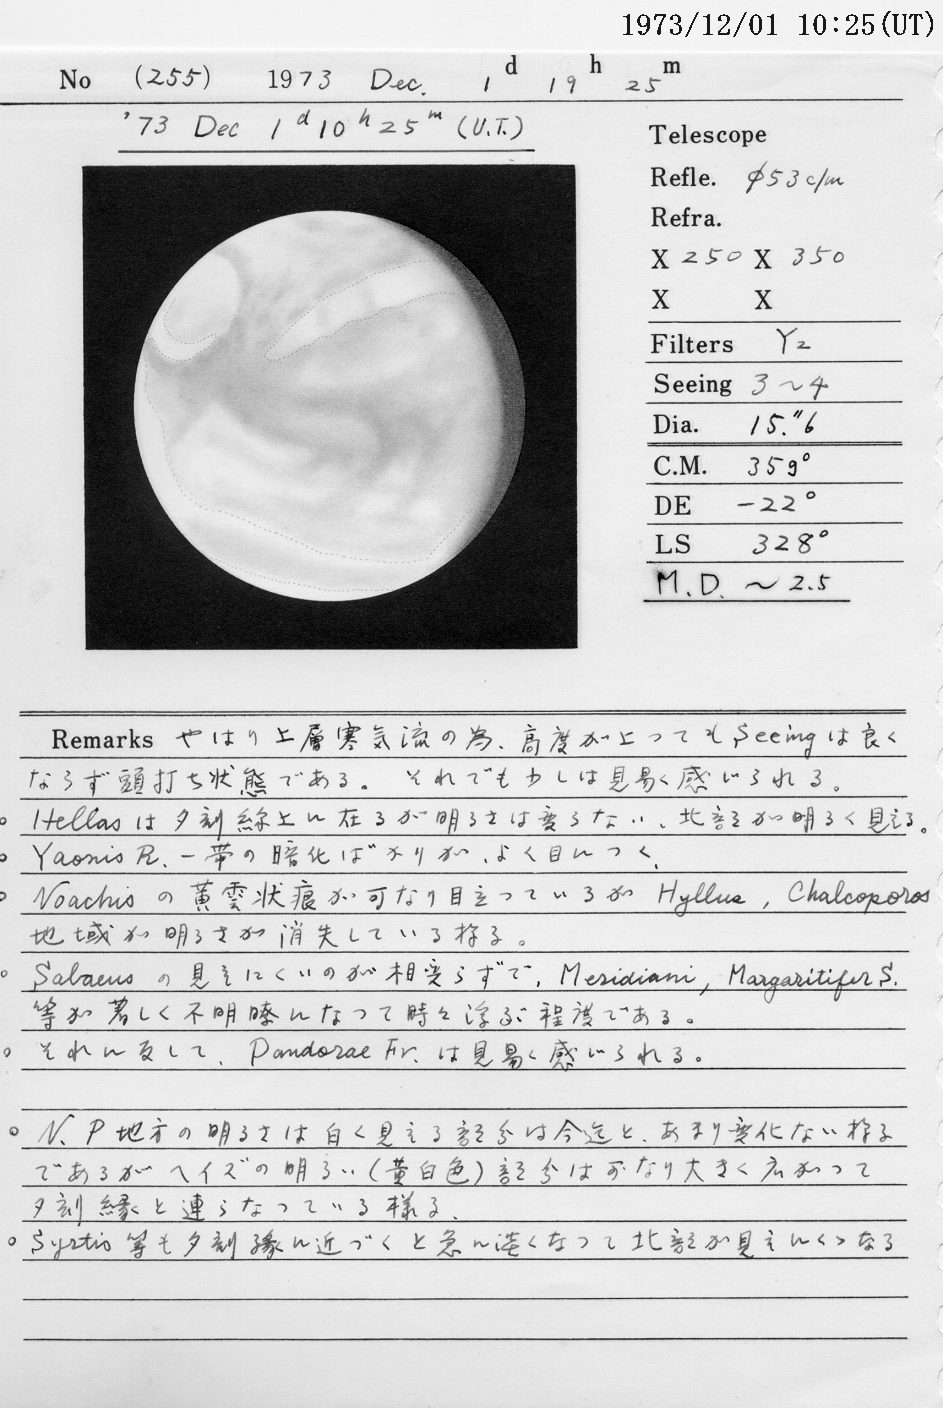 1973/12/01 10:25(UT)
No (255) 1973 Dec. 1 d 19 h 25 m
'73 Dec 1 d 10 h 25 m (U.T.)
Telescope
Refle. φ53 c/m
Refra.
X 250 X 350
X X
Filters Y2
Seeing 3～4
Dia. 15."6
C.M. 359°
DE -22°
LS 328°
M.D. ～2.5
Remarks やはり上層寒気流の為、高度が上ってもSeeingは良く
ならず頭打ち状態である。それでも少しは見易く感じられる。
Hellasは夕刻線上に在るが明るさは変らない、北部が明るく見える。
Yaonis R. 一帯の暗化ばかりが、よく目につく、
Noachisの黄雲状痕が可なり目立っているが Hyllus, Chalcoporos
地域が明るさが消失している様る。
Sabaeusの見えにくいのが相変らずで, Meridiani, Margaritifer S.
等が著しく不明瞭になって時々浮ぶ程度である。
それに反して、Pandorae Fr. は見易く感じられる。
N.P地方の明るさは白く見える部分は今迄と、あまり変化ない様る
であるがヘイズの明るい(黄白色)部分はかなり大きく広がって
夕刻縁と連らなっている様る、
Syrtis等も夕刻縁に近づくと急に淡くなって北部が見えにくゝなる